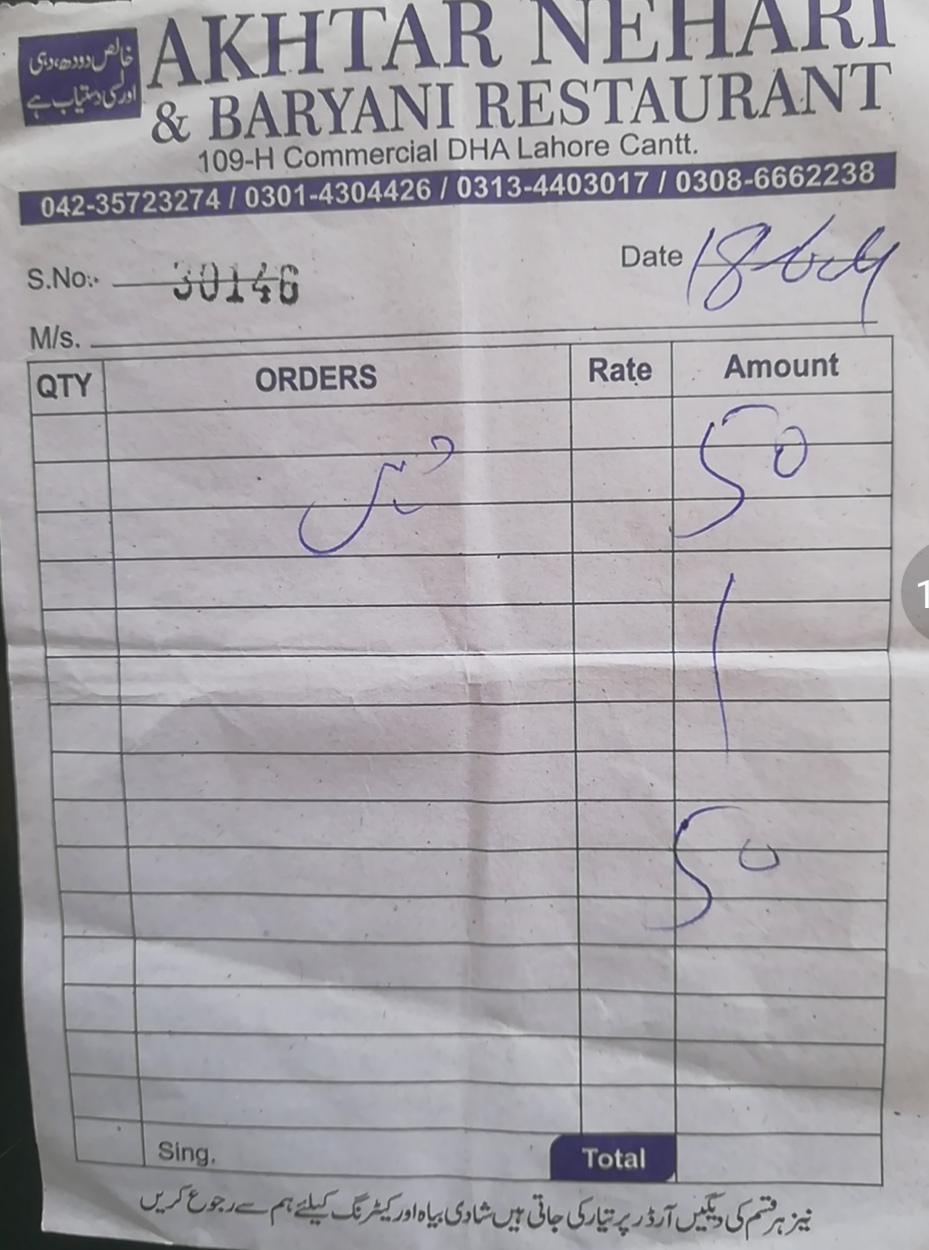 خالص دودھ، دہی
اور لسی دستیاب ہے
AKHTAR NEHARI
& BARYANI RESTAURANT
109-H Commercial DHA Lahore Cantt.
042-35723274 / 0301-4304426 / 0313-4403017 / 0308-6662238
S.No:- 30146
Date 18
M/s.
QTY ORDERS Rate Amount
50
50
Sing. Total
نیز ہر قسم کی دیگیں آرڈر پر تیار کی جاتی ہیں شادی بیاہ اور کیٹرنگ کیلئے ہم سے رجوع کریں
1